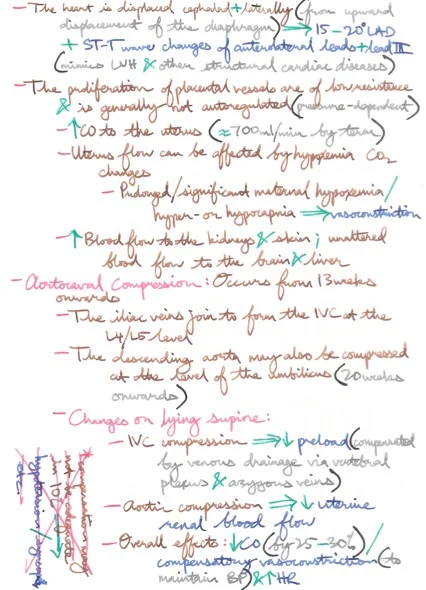 - The heart is displaced cephalad + laterally (from upward
displacement of the diaphragm) ⇒ 15-20° LAD
+ ST-T wave changes of anterolateral leads + lead III
(mimics LVH & other structural cardiac diseases)
- The proliferation of placental vessels are of low resistance
& is generally not autoregulated (pressure-dependent)
- ↑ CO to the uterus (≈700ml/min by term)
- Uterus flow can be affected by hypoxemia CO2
changes
- Prolonged/significant maternal hypoxemia/
hyper- or hypocapnia ⇒ vasoconstriction
- ↑ Blood flow to the kidneys & skin; unaltered
blood flow to the brain & liver
- Aortocaval Compression: Occurs from 13 weeks
onwards
- The iliac veins join to form the IVC at the
L4/L5 level
- The descending aorta may also be compressed
at the level of the umbilicus (20 weeks
onwards)
- Changes on lying supine:
- IVC compression ⇒ ↓ preload (compensated
by venous drainage via vertebral
plexus & azygous veins)
- Aortic compression ⇒ ↓ uterine
renal blood flow
- Overall effects: ↓ CO (by 25-30%) /
compensatory vasoconstriction (to
maintain BP) & ↑ HR
* Compensation may
not be adequate